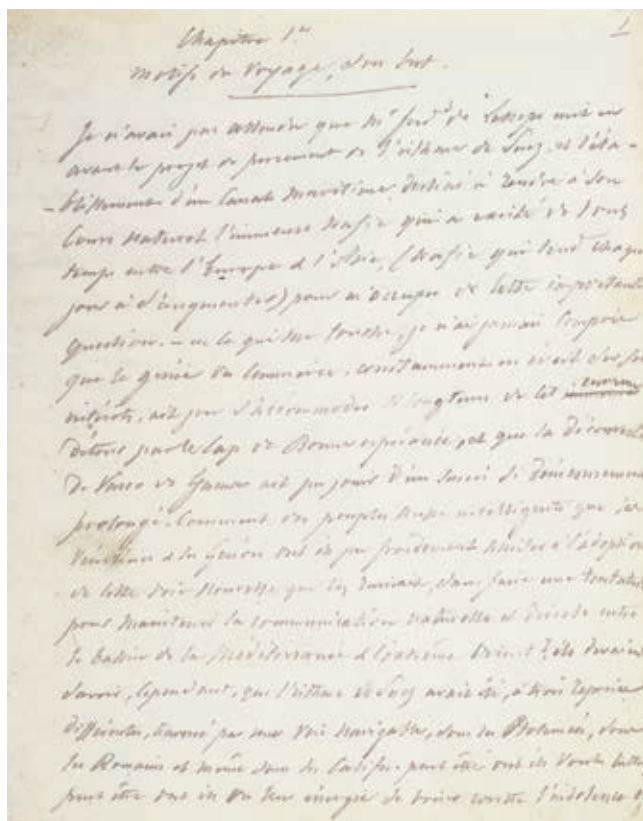 1
Chapitre 1er
Motifs du Voyage, son but.
Je n'avais pas attendu que Mr. ferdd de Lesseps mit en
avant le projet de percement de l'isthme de Suez, et l'éta-
-blissement d'un Canal Maritime destiné à rendre à son
Cours naturel l'immense trafic qui a existé de tout
temps entre l'Europe & l'Asie, (trafic qui tend chaque
jour à s'augmenter) pour m'occuper de cette importante
question. — en ce qui me touche, je n'ai jamais compris
que le génie du Commerce, constamment en éveil sur ses
intérêts, ait pu s'accommoder si longtems de cet
détour par le Cap de Bonne espérance, et que la découverte
de Vasco de Gama ait pu jouir d'un succès si
prolongé. Comment des peuples aussi intelligents que les
Vénitiens & les Génois ont ils pu froidement assister à l'adoption
de cette voie nouvelle qui les ruinait, sans faire une tentative
pour maintenir la communication naturelle et directe entre
le bassin de la Méditerranée & l'extrême Orient? ils devaient
savoir, cependant, que l'isthme de Suez avait été, à trois reprises
différentes, traversé par une voie navigable, sous les Ptolémées, sous
les Romains et même sous les Califes. peut être ont ils voulu lutter
peut être ont ils vu leur énergie se briser contre l'indolence